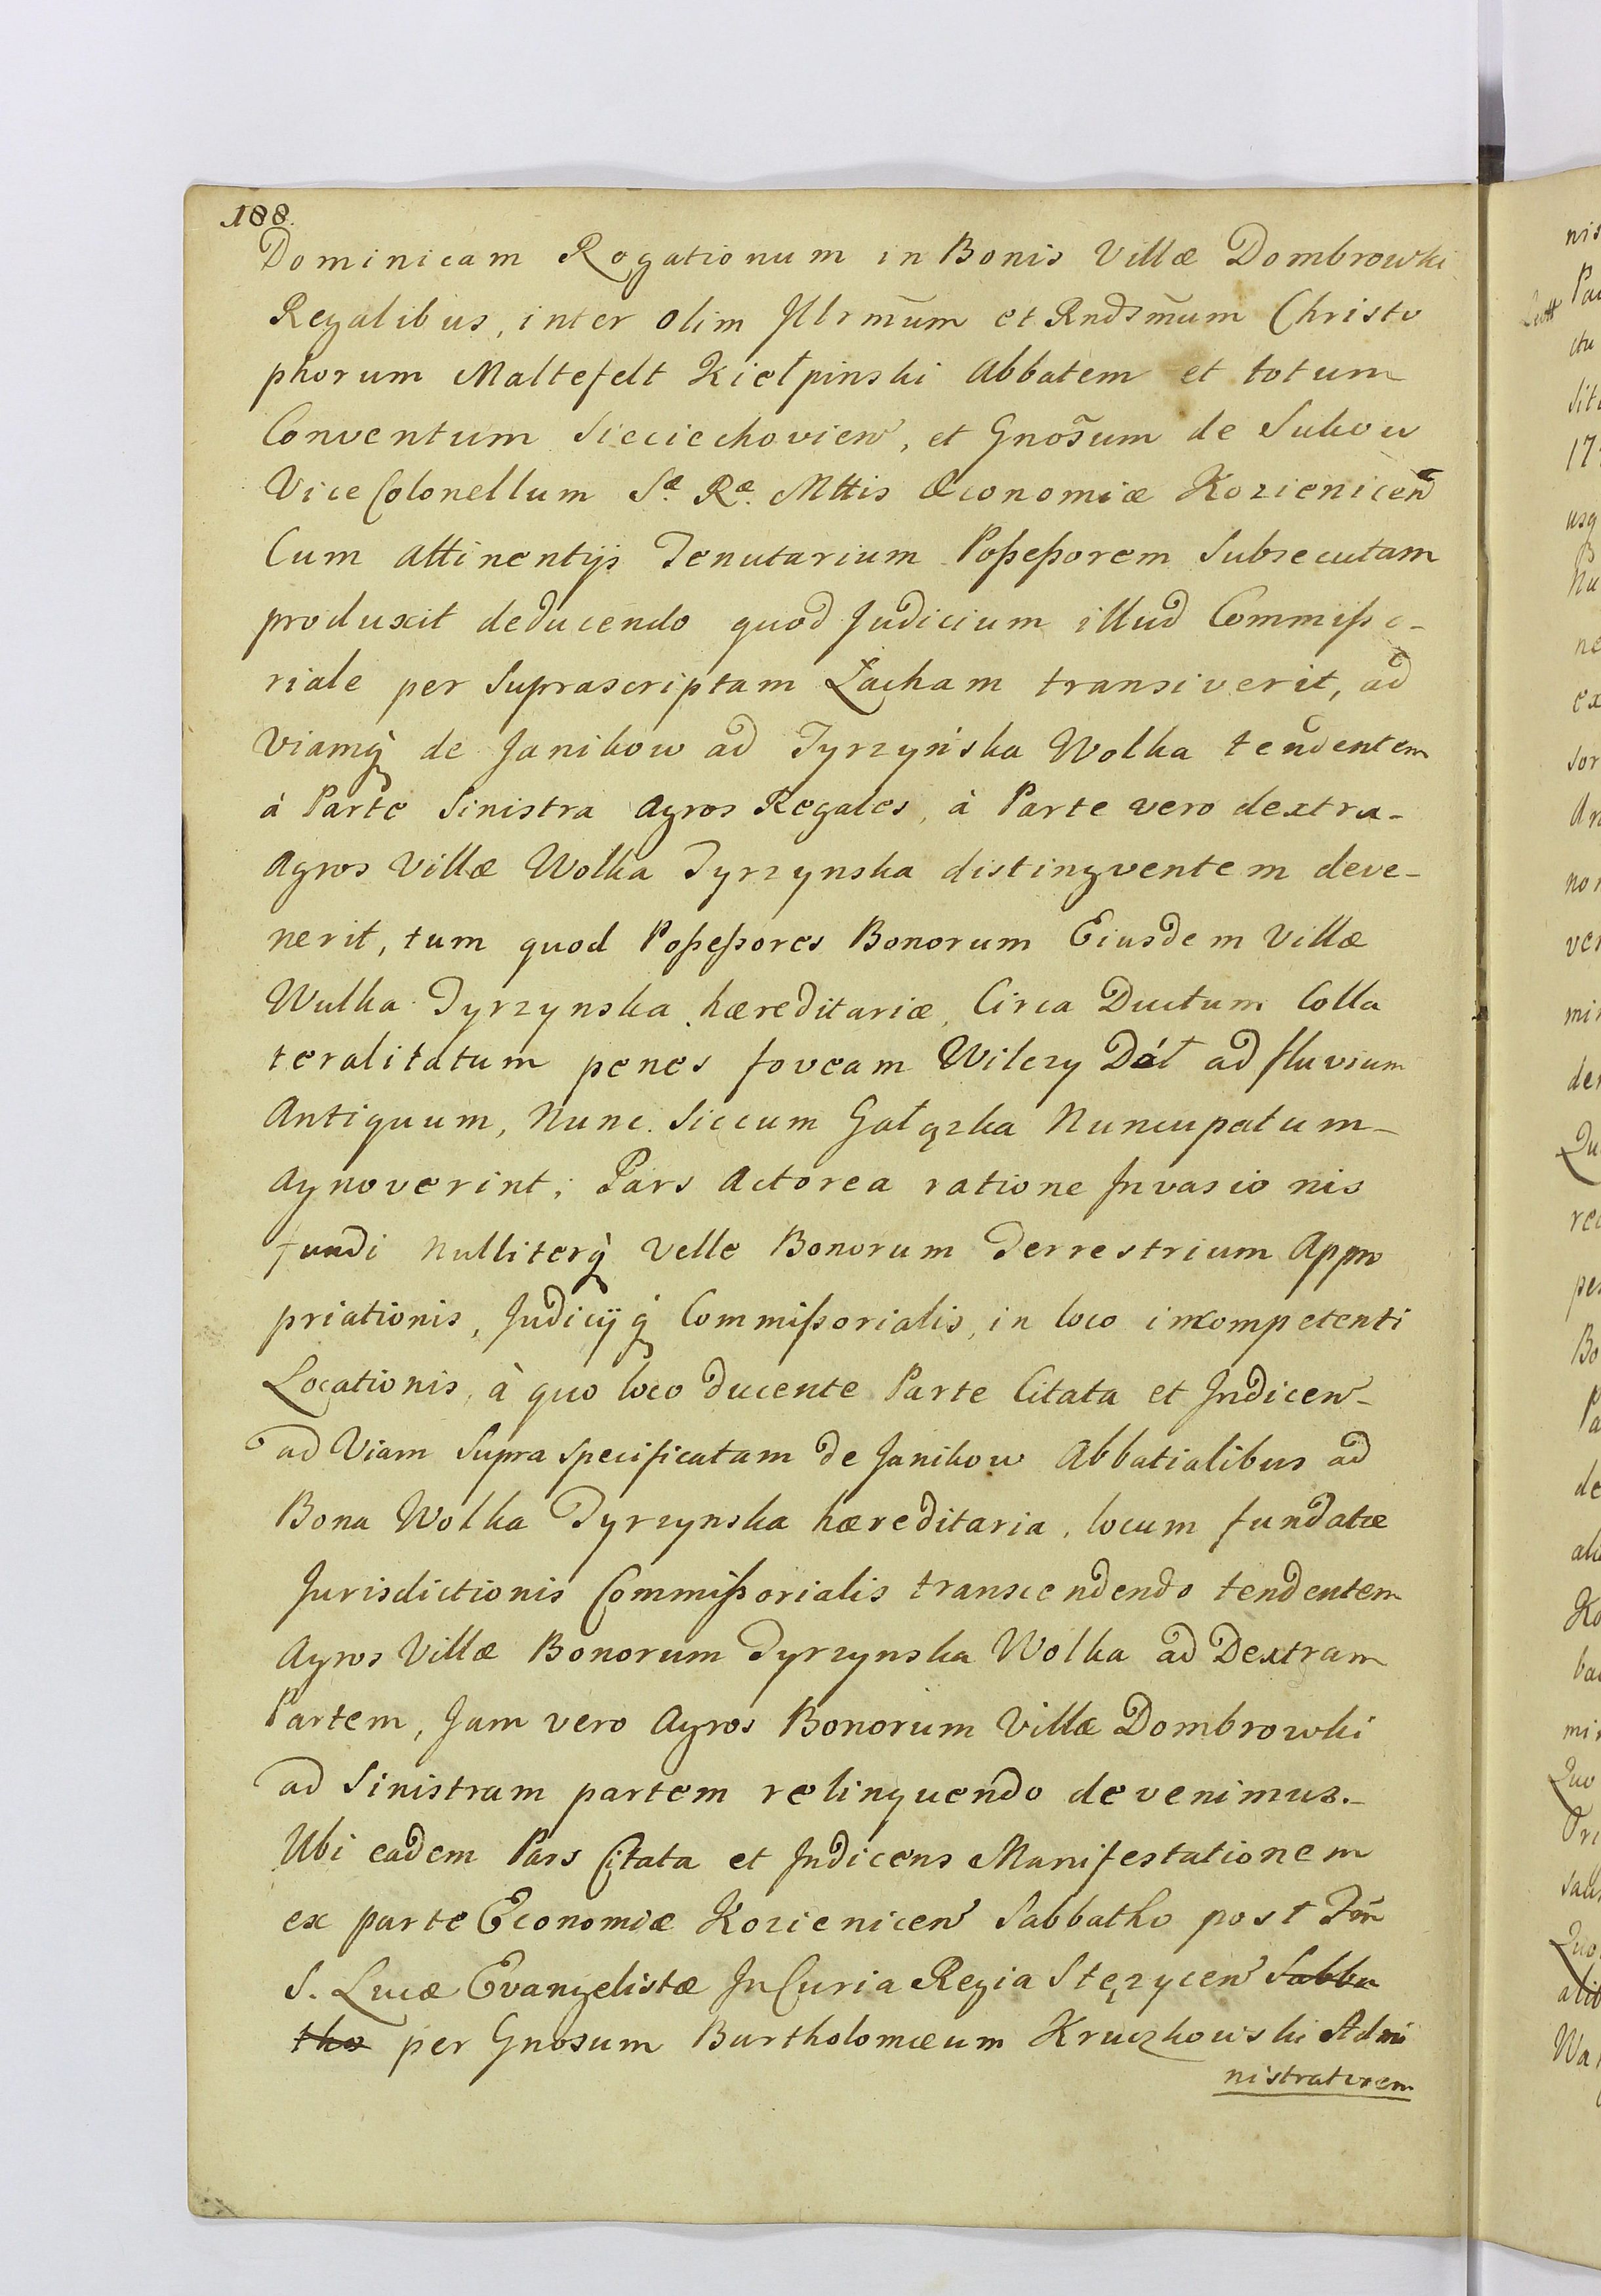 188.
Dominicam Rogationum in Bonis Villæ Dombrowki
Regalibus, inter olim Illrm̃um et Rndsm̃um Christo
phorum Maltefelt Kiełpinski Abbatem et totum
Conventum Sieciechovien, et Gnos̃um de Sukow
Vice Colonellum Sæ Ræ. Mttis Œconomiæ Kozienicen
Cum attinentijs Tenutarium Poßeßorem Subsecutam
produxit deducendo quod Judicium illud Commißo-
riale per Suprascriptam Łacham transiverit, ad
Viamq̀ de Janikow ad Tyrzyńska Wolka tendentem
à Parte Sinistra Agros Regales, à Parte vero dextra-
Agros Villæ Wolka Tyrzynska distingventem deve-
nerit, tum quod Poßeßores Bonorum Eiusdem Villæ
Wulka Tyrzynska hæreditariæ, Circa Ductum Colla
teralitatum penes foveam Wilczy Dół ad fluvium
Antiquum, Nunc Siccum Gałązka Nuncupatum-
Agnoverint; Pars Actorea ratione Invasionis
fundi Nulliterq̀ Velle Bonorum Terrestrium Appro
priationis, Judicijq̀ Commißorialis, in loco incompetenti
Locationis, à quo loco ducente Parte Citata et Indicen-
ad Viam Supra specificatam de Janikow Abbatialibus ad
Bona Wolka Tyrzynska hæreditaria, locum fundatæ
Jurisdictionis Commißorialis transcendendo tendentem
Agros Villæ Bonorum Tyrzynska Wolka ad Dextram
Partem, Jam vero Agros Bonorum Villæ Dombrowki
ad Sinistram partem relinquendo devenimus.-
Ubi eadem Pars Citata et Indicens Manifestationem
ex parte Economiæ Kozienicen Sabbatho post Fm̃
S. Lucæ Evangelistæ In Curia Regia Stęzycen Sabba
tho per Gnosum Bartholomæum Kruczkowski Admi
nistratorem
nis
Pa
ctu
sit
17
usq
Nu
ne
ex
sor
An
non
ver
min
den
Qu
rec
per
Bo
Pa
de
ali
Ko
ba
min
Quo
Ori
Quo
alit
Wa